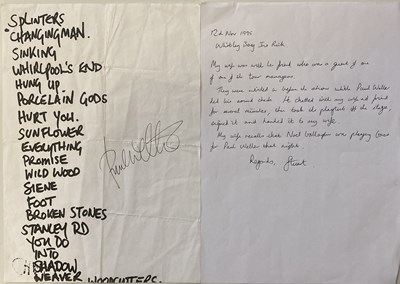 SPLINTERS
CHANGINGMAN.
SINKING
WHIRLPOOL'S END.
HUNG UP
PORCELAIN GODS
HURT YOU.
SUNFLOWER
EVERYTHING
PROMISE
WILD WOOD
FOOT
BROKEN STONES
STANLEY RD
YOU DO
INTO
SHADOW
WEAVER
WOODCUTTERS.
12th Nov 1995
Whitley Bay Ice Rink
My wife was with her friend who was a guest of one
of the tour managers
They were invited in before the show while Paul Weller
did his sound check. He chatted with my wife and friend
for several minutes, then took the playlist off the stage
signed it and handed it to my wife.
My wife recalls that Noel Gallagher was playing
for Paul Weller that night.
Regards, Stuart